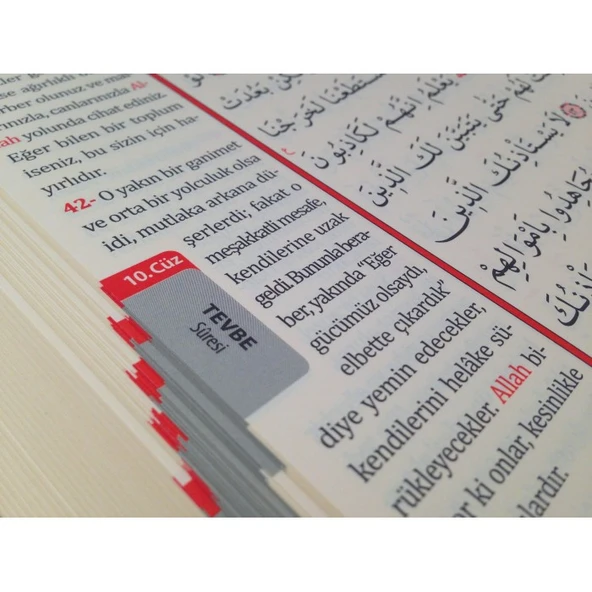 se ağırlıklı o
erber olunuz ve mal
rınızla, canlarınızla Al-
lah yolunda cihat ediniz
Eğer bilen bir toplum
iseniz, bu sizin için ha-
yırlıdır.
42- O yakın bir ganimet
ve orta bir yolculuk olsa
idi, mutlaka arkana dü-
şerlerdi, fakat o
meşakkatli mesafe,
kendilerine uzak
geldi. Bununla bera-
ber, yakında “Eğer
gücümüz olsaydı,
elbette çıkardık”
diye yemin edecekler,
kendilerini helâke sü-
rükleyecekler. Allah bi-
ar ki onlar, kesinlikle
lardır.
10.Cüz
TEVBE
Sûresi
بَعُدَتْ
اسْتَطَعْنَا لَخَرَجْنَا
يَعْلَمُ إِنَّهُمْ لَكَاذِبُونَ
لَهُمْ حَتَّى يَتَبَيَّنَ لَكَ الَّذِينَ
لَا يَسْتَأْذِنُكَ الَّذِينَ
يُجَاهِدُوا بِأَمْوَالِهِمْ